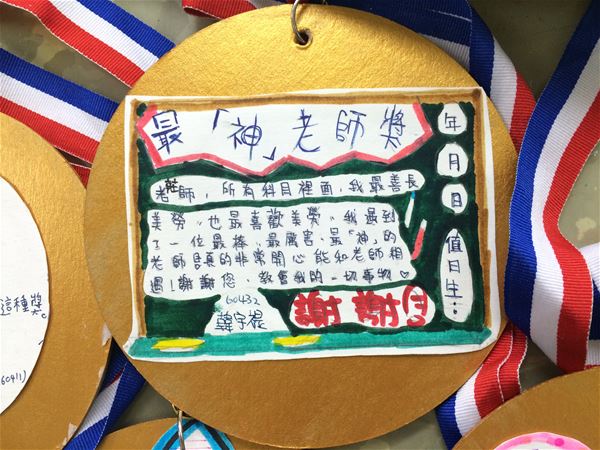 最「神」老師獎
莊老師，所有科目裡面，我最善長
美勞，也最喜歡美勞。我遇到
了一位最棒、最厲害、最「神」的
老師！真的非常開心能和老師相
遇！謝謝您，教會我的一切事物♡
60432
謝謝
年
月
日
值日生：
這種獎。
60411)